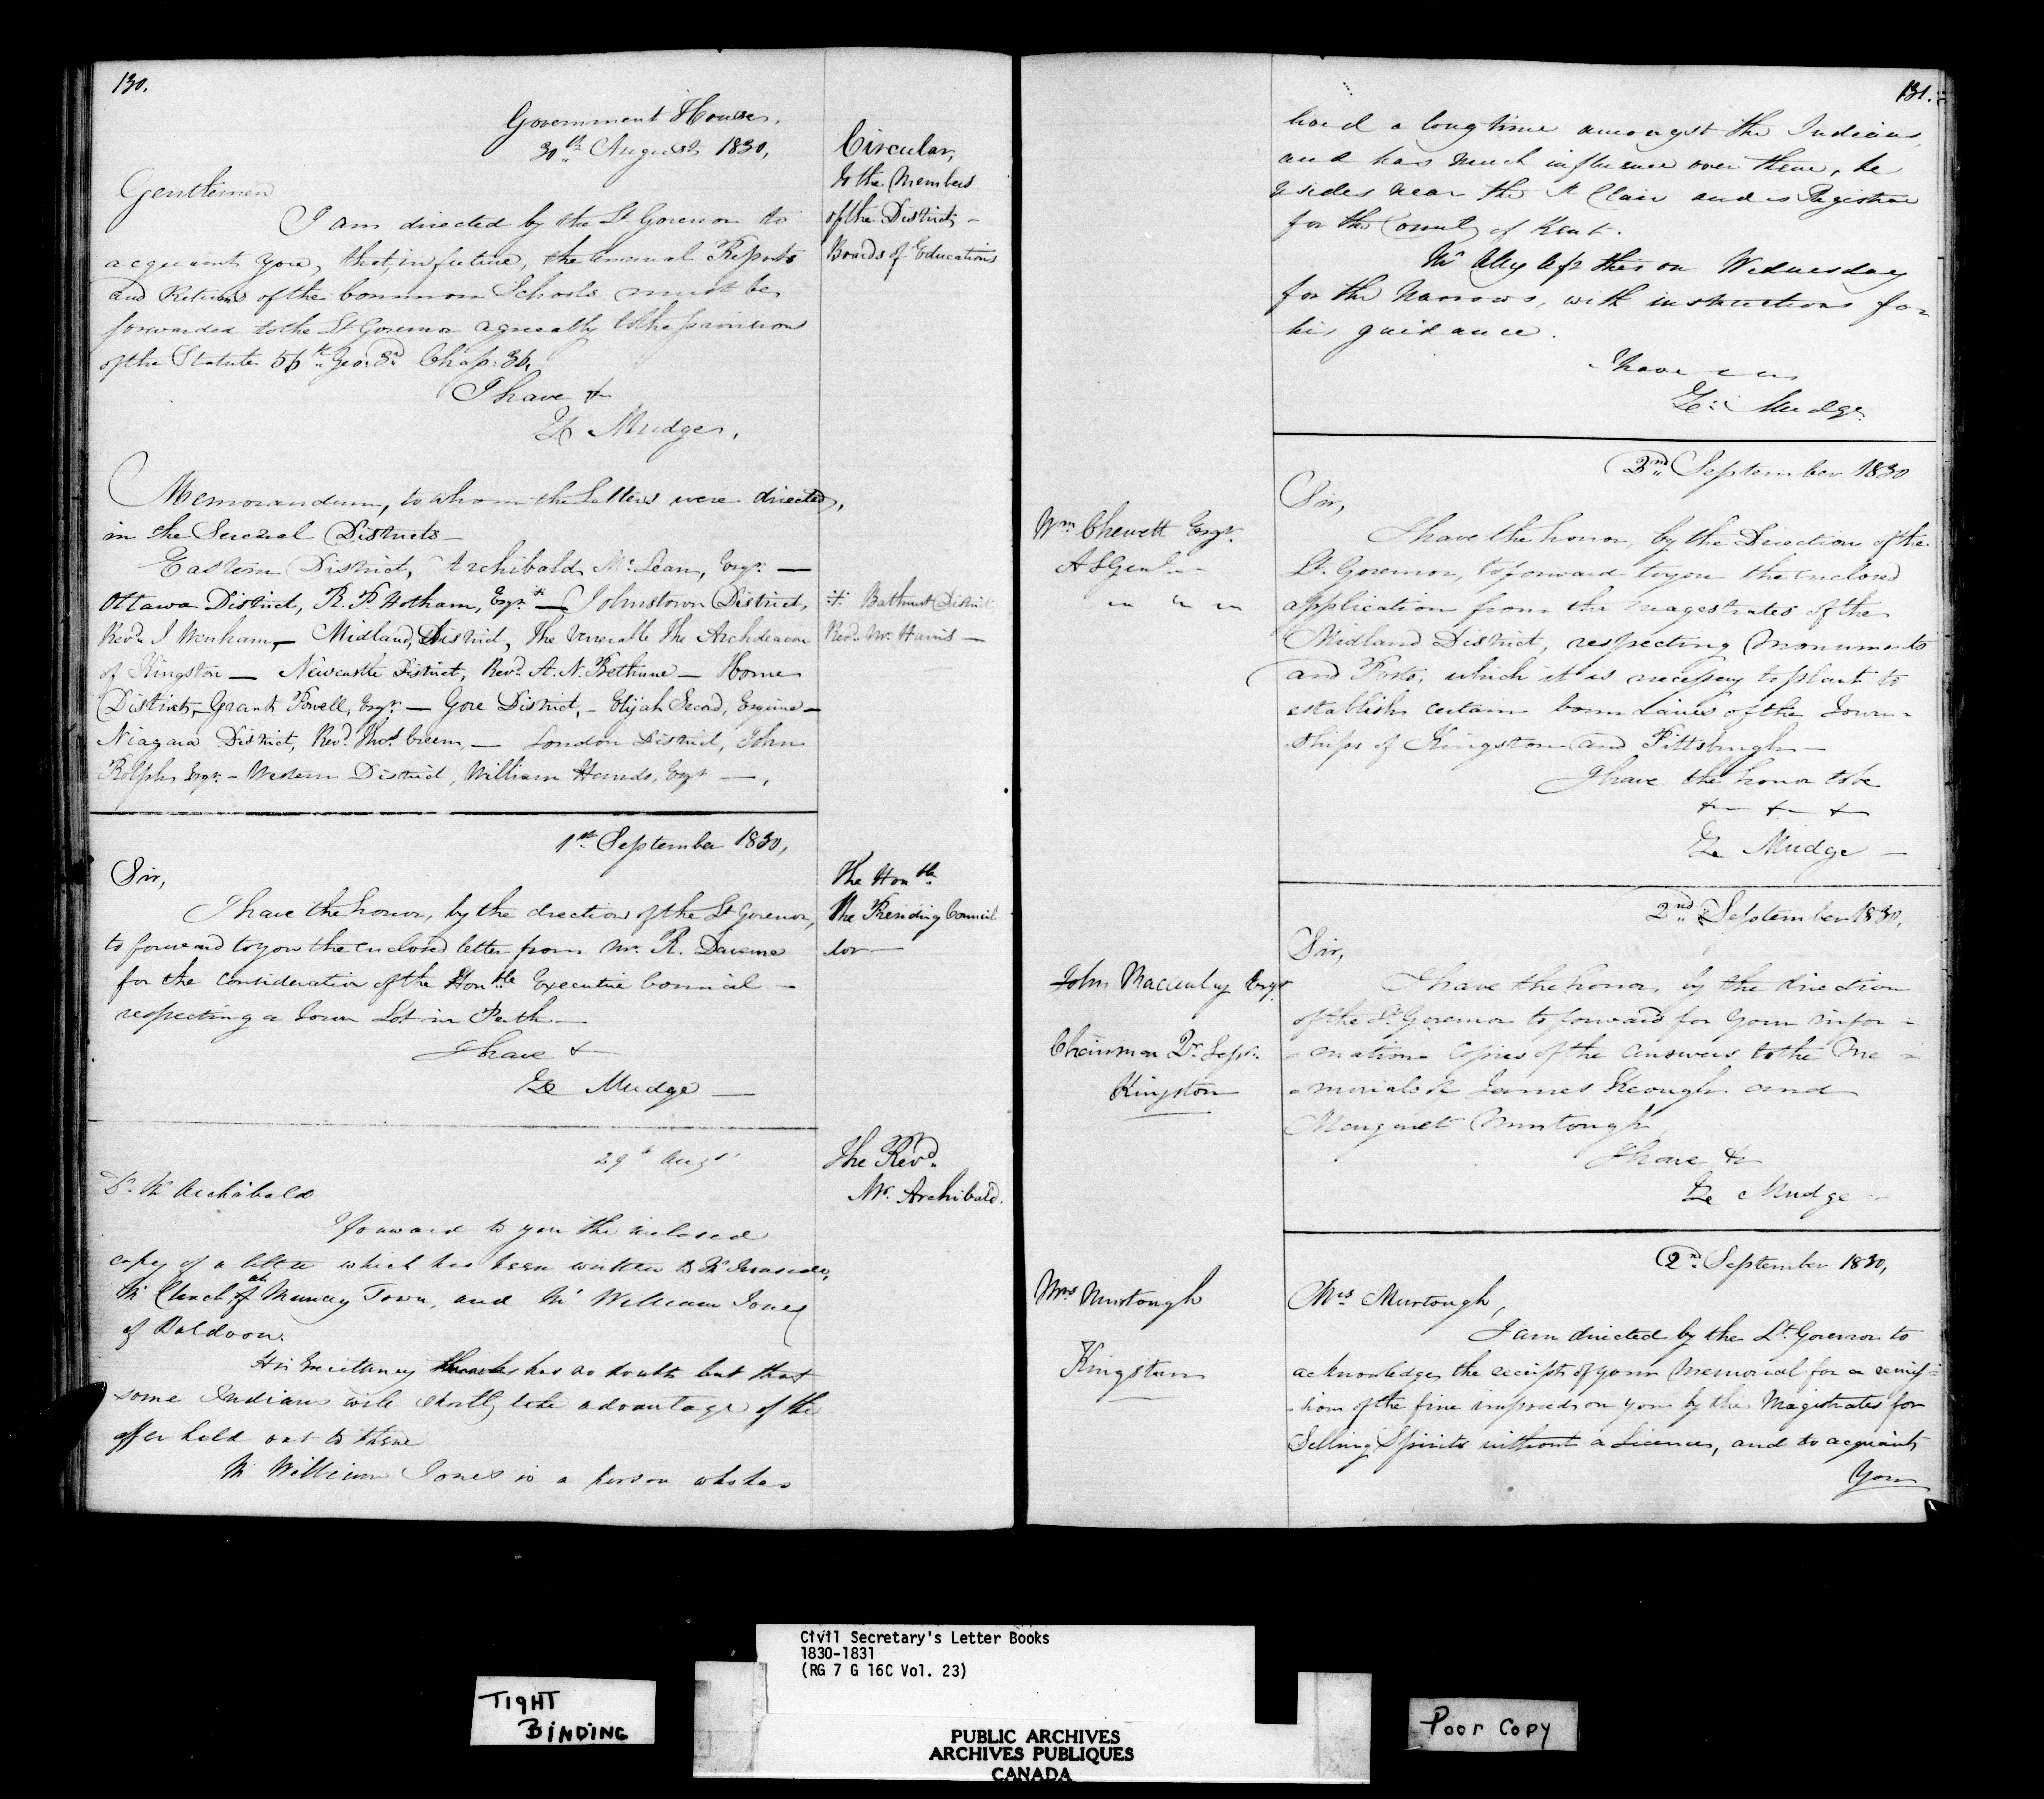 130.
Government House,
30th August 1830,
Circular,
to the Members
of the District
Boards of Education
Gentlemen
I am directed by the Lt Governor to
acquaint you, that, in future, the annual Reports
and Returns of the Common Schools must be
forwarded to the Lt Governor agreeably to the provision
of the Statute 56th Geo: 3d Chap: 36,
I have &
Z Mudge,
Memorandum, to whom the Letters were directed,
in the Several Districts—
Eastern District, Archibald McLean, Esqr. —
Ottawa District, R. P. Hotham, Esqr — Johnstown District,
Revd. J Wenham, — Midland, District, The Venerable The Archdeacon
of Kingston — Newcastle District, Revd. A. N. Bethune — Home
District, Grant Powell, Esqr. — Gore District, — Elijah Secord, Esquire —
Niagara District, Revd. Thos. Creen, — London District, John
Rolph Esqr. — Western District, William Hands, Esqr —,
Bathurst District,
Revd. Mr. Harris —
1st September 1830,
The Honble.
the Presiding Council
lor —
Sir,
I have the honor, by the direction of the Lt Governor,
to forward to you the enclosed letter from Mr. R.
for the consideration of the Honble Executive Council —
respecting a Town Lot in Perth —
I have &
Z Mudge —
29th Augt
The Revd.
Mr. Archibald.
Dr Mr Archibald
I forward to you the inclosed
copy of a letter which has been written to Mr Ironside,
Mr Clench at Muncey Town, and Mr William Jones
of Baldoon.
His Excellency has no doubt but that
some Indians will shortly take advantage of the
offer held out to them
Mr William Jones is a person who has
131.
lived a long time amongst the Indians,
and has much influence over them, he
resides near the St Clair and is Registrar
for the County of Kent.
Mr left this on Wednesday
for the Narrows, with instructions for
his guidance.
I have
Z Mudge
2nd September 1830
Wm Chewett Esqr.
A S Genl
Sir,
I have the honor, by the Direction of the
Lt. Governor, to forward to you the enclosed
application from the Magistrates of the
Midland District, respecting Monuments
and Posts, which it is necessary to plant to
establish certain boundaries of the Town-
ships of Kingston and Pittsburgh —
I have the honor to be
& & &
Z Mudge —
2nd September 1830,
John Macaulay Esqr
Chairman Qr. Sessn.
Kingston
Sir,
I have the honor, by the direction
of the Lt Governor to forward for your infor-
-mation Copies of the Answers to the Me-
-morials of James Keough and
Margaret Murtough
I have &
Z Mudge —
2nd September 1830,
Mrs Murtough
Kingston
Mrs Murtough,
I am directed by the Lt. Governor to
acknowledge the receipt of your Memorial for a remis-
-sion of the fine imposed on you by the Magistrates for
Selling Spirits without a Licence, and to acquaint
You
Civil Secretary's Letter Books
1830-1831
(RG 7 G 16C Vol. 23)
TIGHT
BINDING
PUBLIC ARCHIVES
ARCHIVES PUBLIQUES
CANADA
Poor Copy